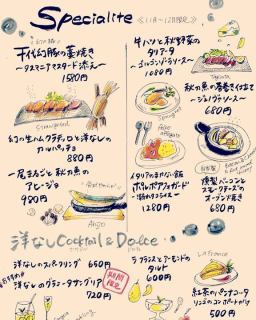 Specialite
《11月~12月限定》
千代幻豚の藁焼き
~タスマニアマスタード添え~
1580円
幻の生ハムクラテッロと洋なしの
カルパッチョ
880円
一尾まるごと 秋刀魚の
アヒージョ
980円
Ahijo
牛ハツと秋野菜の
タリアータ
~ゴルゴンゾーラソース~
1080円
Tagliata
秋刀魚の春巻き仕立て
~ジェノヴァソース~
680円
イタリアのまかない飯
1280円
自家製
燻製ベーコンと
スモークチーズの
オーブン焼き
680円
洋なしCocktail & Dolce
洋なしのスパークリング 650円
洋なしのグラニータサングリア
920円
期間限定
ラ・フランスとアーモンドの
タルト
600円
La France
紅茶のパンナコッタ
リンゴのコンポート添え
500円